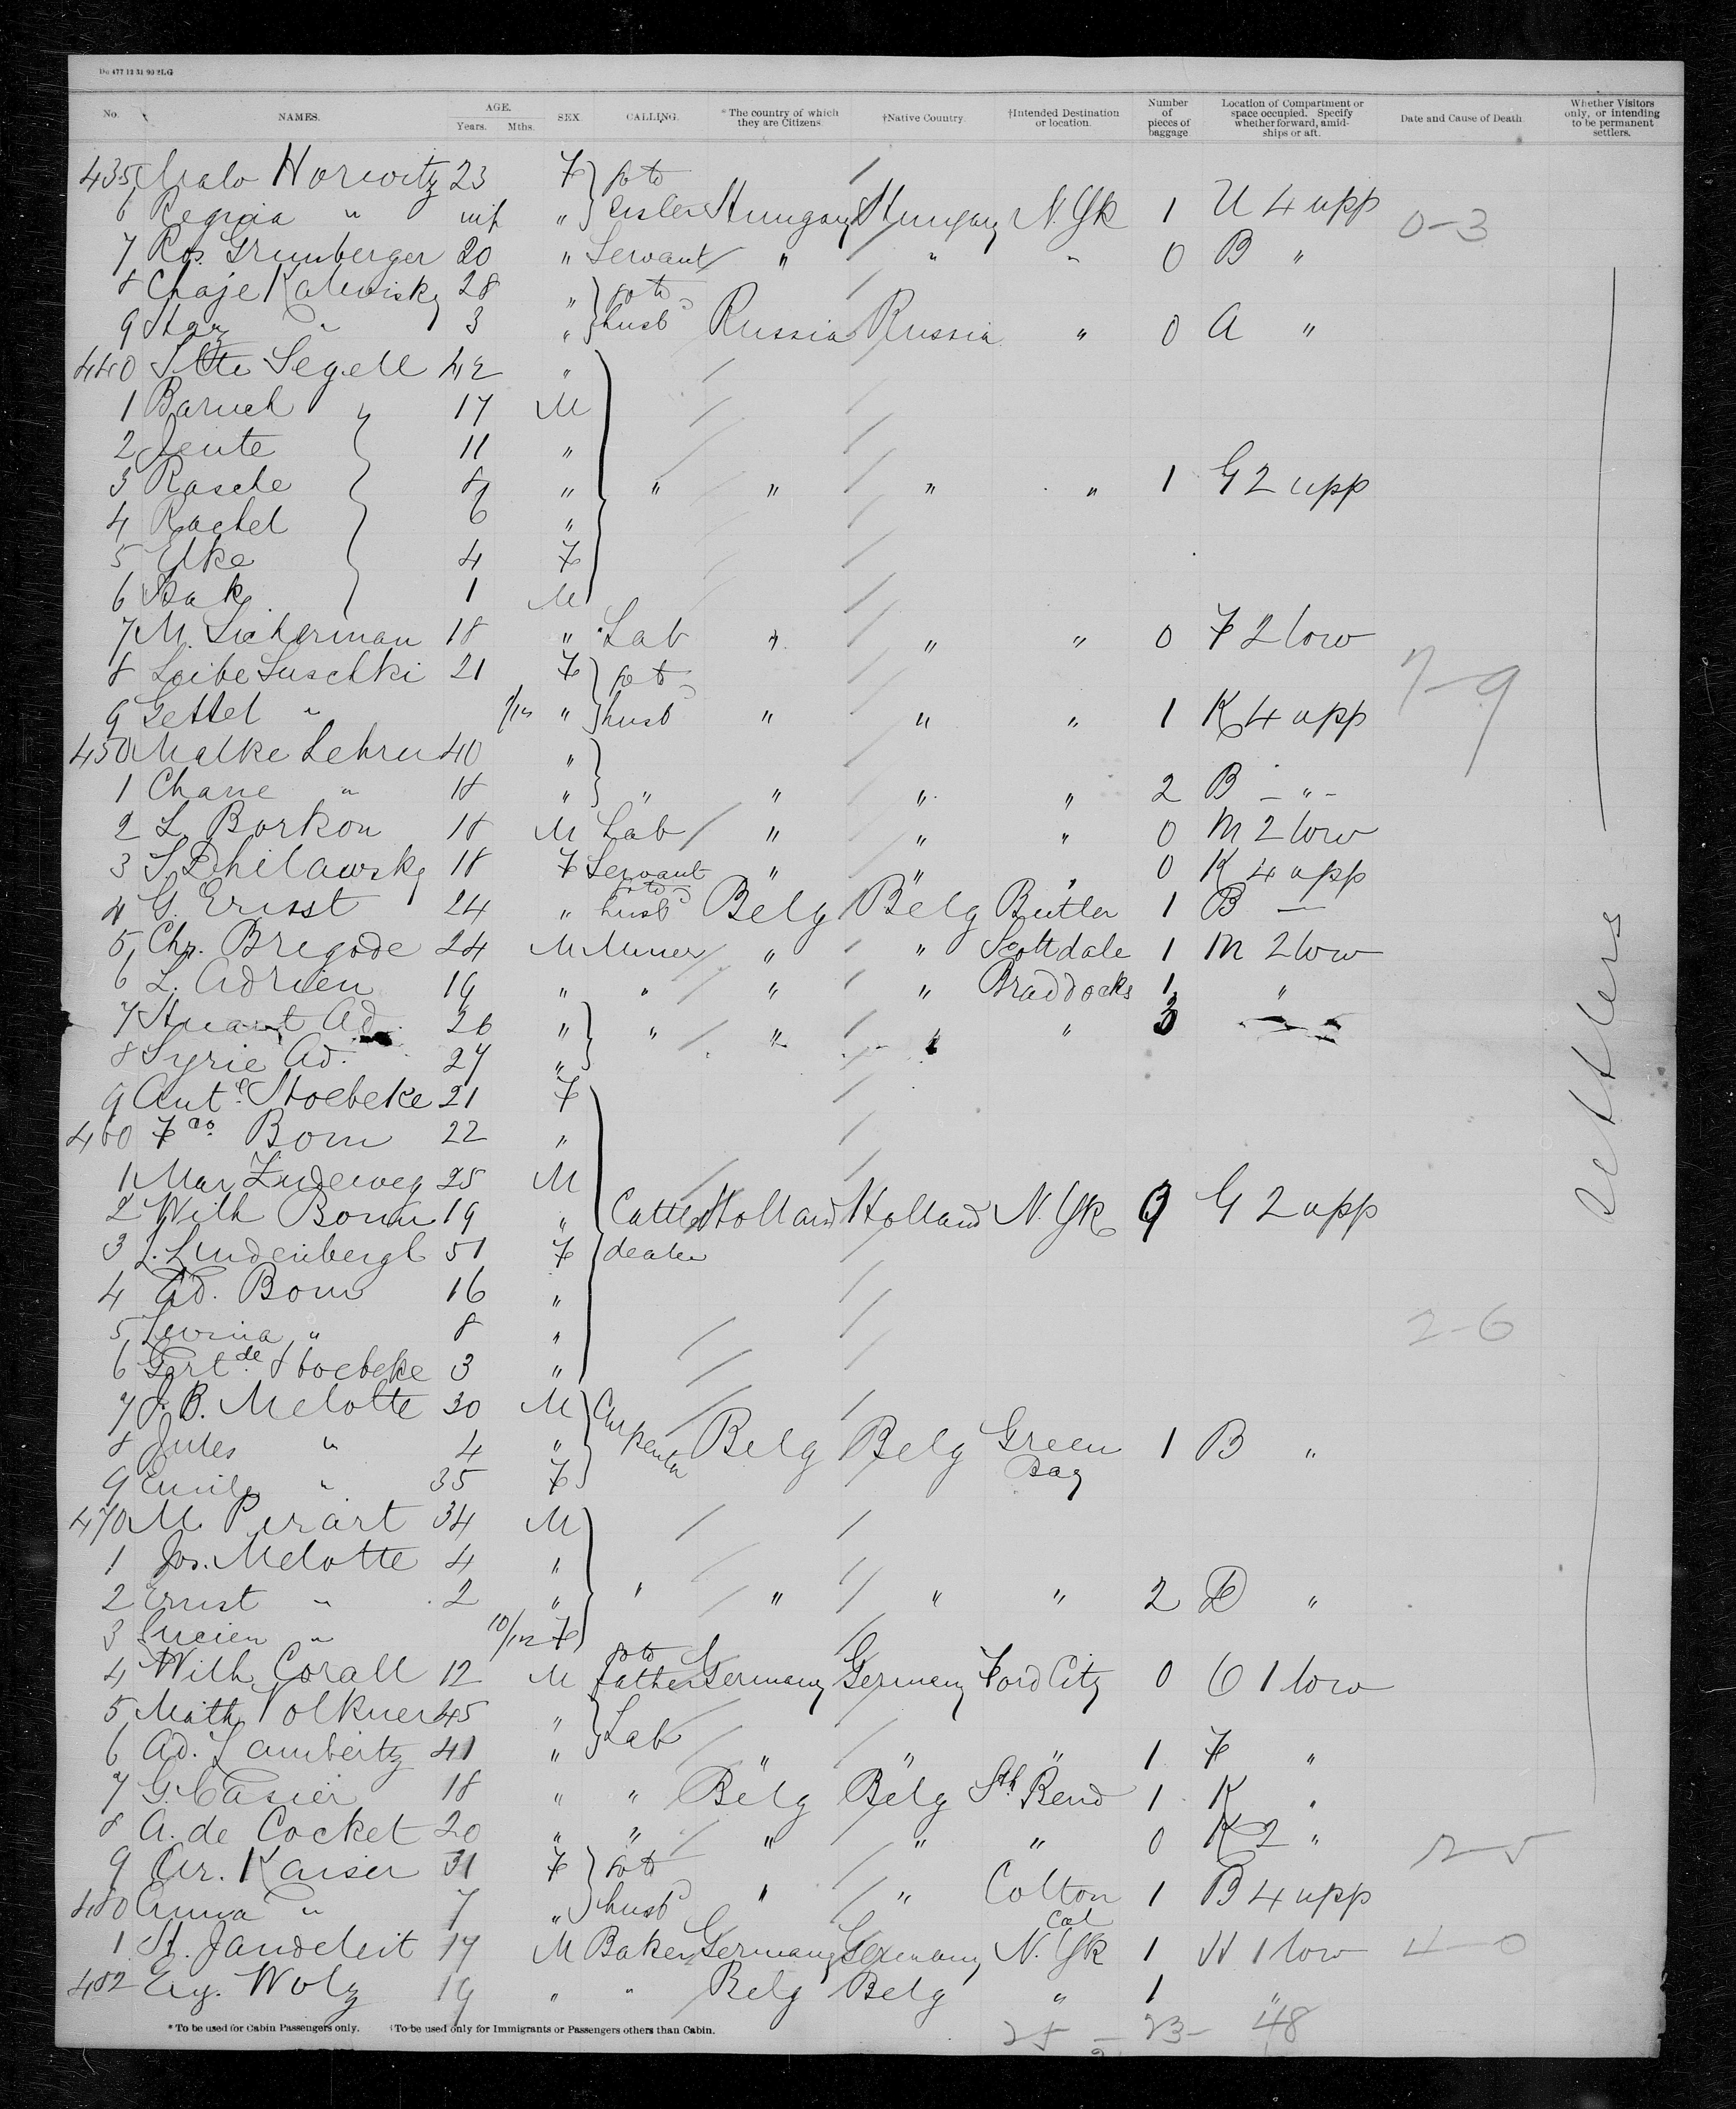 No. NAMES. AGE. Years. Mths. SEX. CALLING. * The country of which they are Citizens. †Native Country. †Intended Destination or location. Number of pieces of baggage Location of Compartment or space occupied. Specify whether forward, amidships or aft. Date and Cause of Death. Whether Visitors only, or intending to be permanent settlers.
435 Malo Horwitz 23 F go to
6 Regina " inf " sister Hungary Hungary N. Yk 1 U 4 upp 0-3
7 Ros. Grunberger 20 " Servant " " " 0 B "
8 Chaje 28 " go to
9 " 3 " husb Russia Russia " 0 A "
440 Itte Segell 42 "
1 Baruch " 17 M
2 Jente 11 "
3 Rasche 8 " " " " " 1 G 2 upp
4 Rachel 6 "
5 Elke 4 F
6 1 M
7 M. Licherman 18 " Lab " " " 0 F 2 low
8 Leibe Luschki 21 F go to 7-9
9 Gettel " /12 " husb " " " 1 K 4 upp
450 Malke Lehrer 40 "
1 Chane " 18 " " " " " 2 B - " -
2 L. Borkon 18 M Lab " " " 0 M 2 low
3 18 F Servant " " " 0 K 4 upp
4 G. Erisst 24 " go to husb Belg Belg Butler 1 B —
5 Chr. Bregode 24 M Miner " " Scottdale 1 M 2 low
6 L. Adrien 19 " " " " Braddocks 1 "
7 Huart Ad. 26 " " " " " 3
8 Syrie Ad. 27 "
9 Ant. Stoebeke 21 F
460 Fco. Bom 22 "
1 Mar 25 M
2 Wilh Bom 19 " Cattle Holland Holland N. Yk 9 G 2 upp
3 L. Lindenbergh 51 F dealer
4 Ad. Bom 16 "
5 Levina " 8 " 2-6
6 Gertde Stoebeke 3 "
7 J. B. Melotte 30 M Carpenter
8 Jules " 4 " Belg Belg Green Bay 1 B "
9 Emily " 35 F
470 M. Pierart 34 M
1 Jos. Melotte 4 "
2 Ernst " 2 " " " " " 2 D "
3 Lucien " 10/12 F
4 Wilh Corall 12 M go to father Germany Germany Ford City 0 O 1 low
5 Math Volkner 45 " Lab
6 Ad. Lambertz 41 " " " " 1 F "
7 G. Casier 18 " " Belg Belg Sth Bend 1 K "
8 A. de Cocket 20 " " " " " 0 K 2 "
9 Kaiser 31 F go to 2-5
480 Anna " 7 " husb " " Colton Cal 1 B 4 upp
1 St. Jandeleit 17 M Baker Germany Germany N. Yk 1 H 1 low 4-0
482 Eug. Wolz 19 " " Belg Belg " 1 "
Settlers
* To be used for Cabin Passengers only. †To be used only for Immigrants or Passengers others than Cabin.
25 - 23 - 48